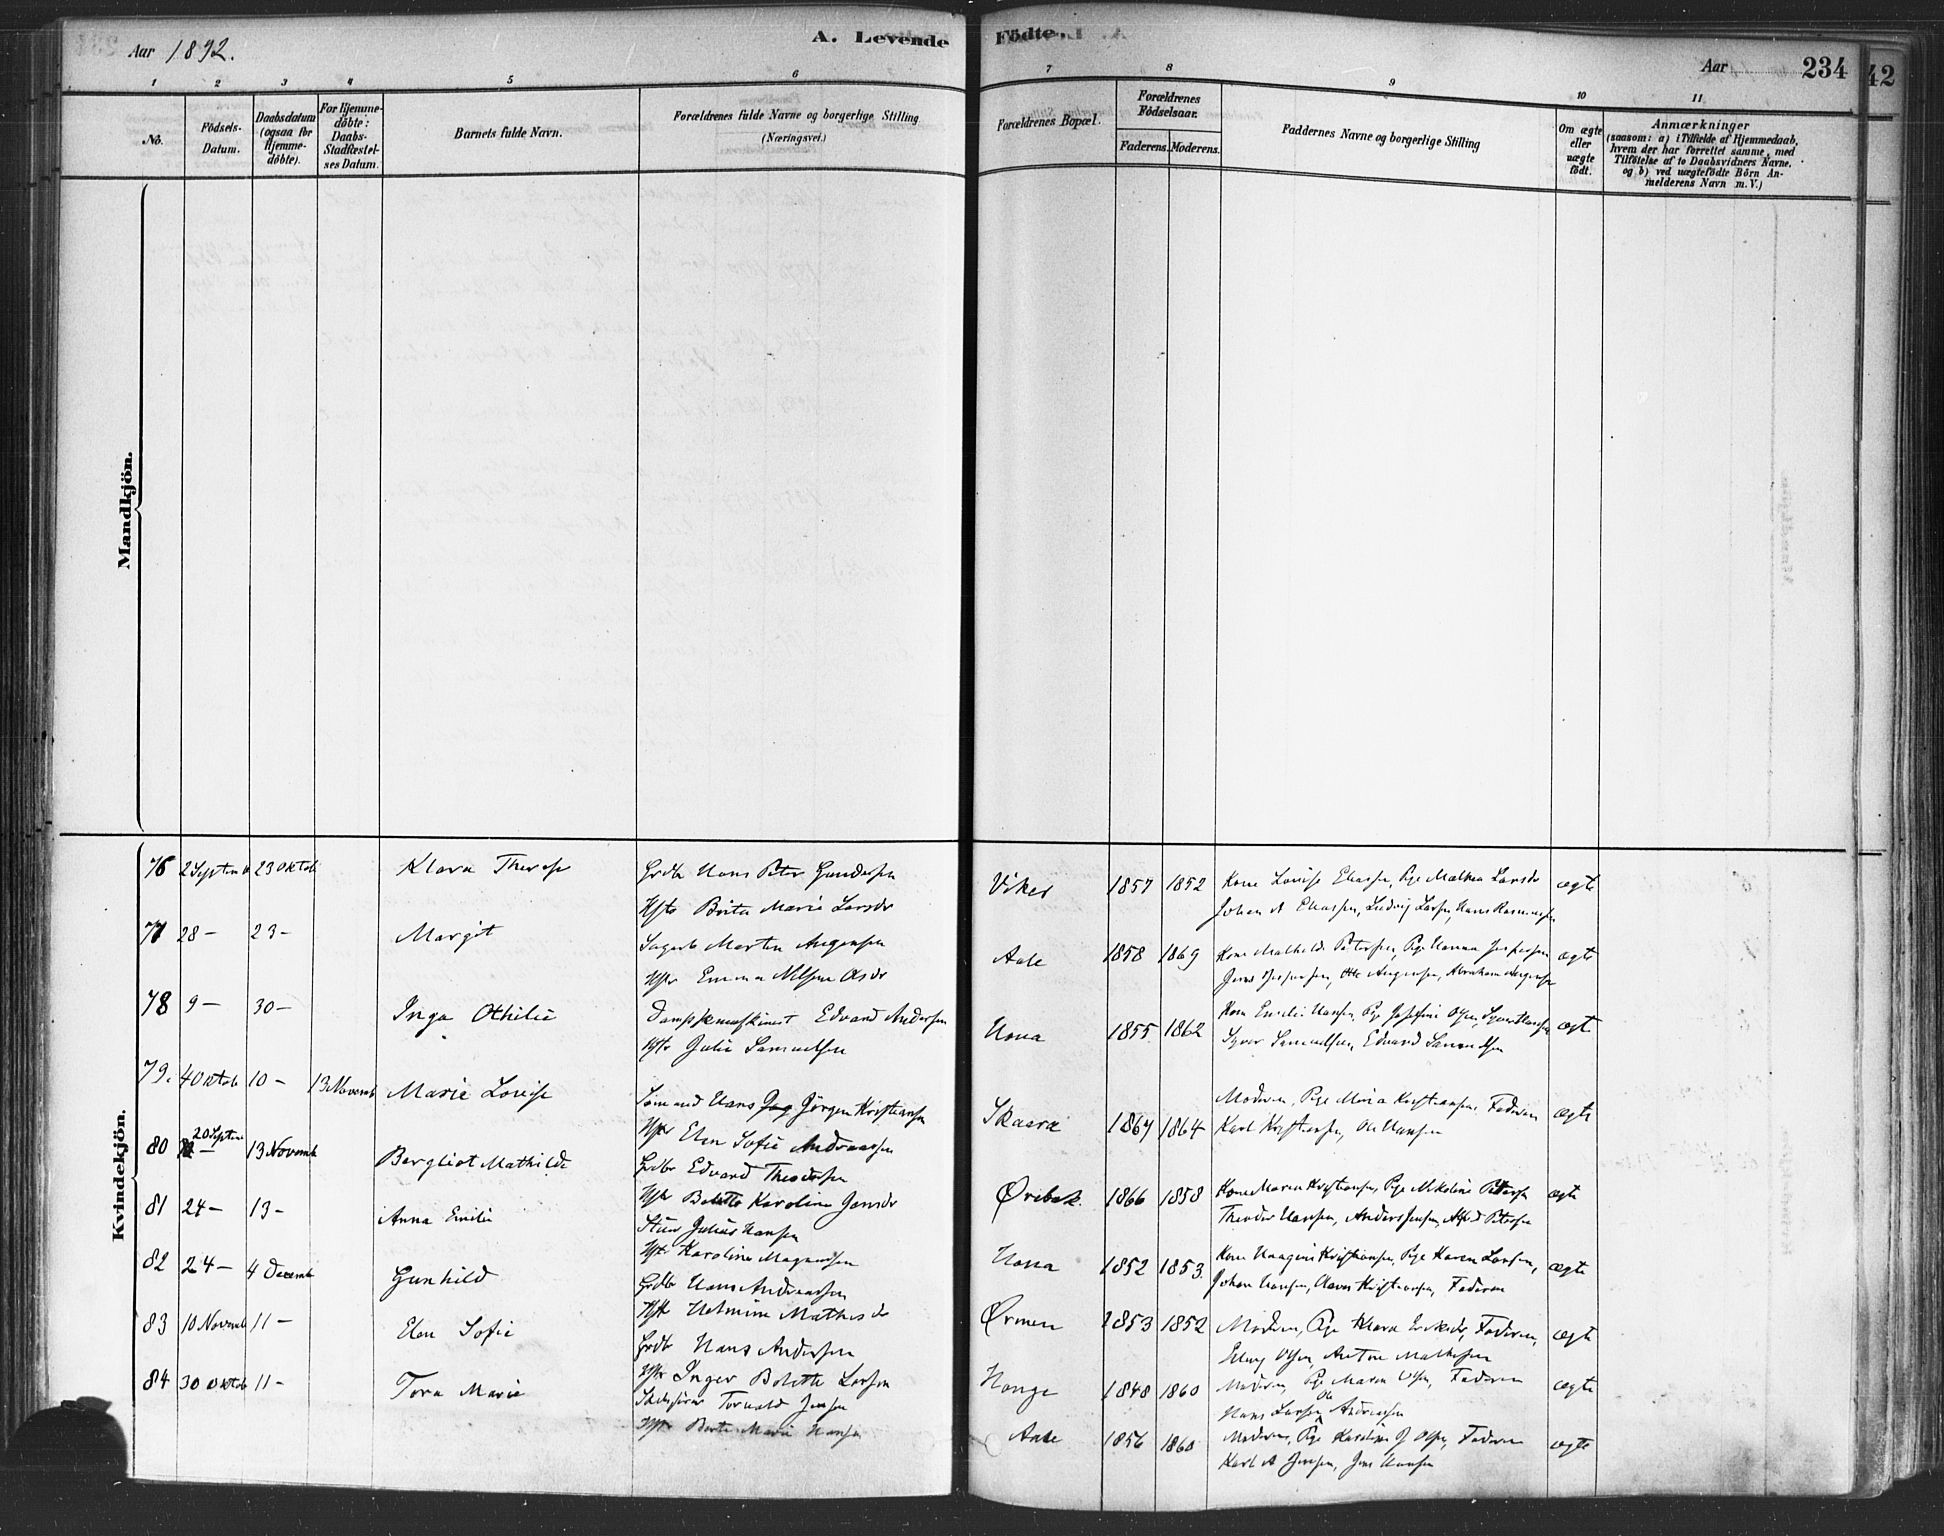 Aar 1892.
A. Levende
Födte.
Aar
234
42
1 2 3 4 5 6
7 8 9 10 11
No.
Födsels-Datum.
Daabsdatum (ogsaa for Hjemme-döbte).
For Hjemme-döbte: Daabs-Stadfæstel-ses Datum.
Barnets fulde Navn.
Forældrenes fulde Navne og borgerlige Stilling
(Næringsvei.)
Forældrenes Bopæl.
Forældrenes Födselsaar.
Faderens. Moderens.
Faddernes Navne og borgerlige Stilling
Om ægte eller uægte födt.
Anmærkninger
(saasom: a) i Tilfælde af Hjemmedaab,
hvem der har forrettet samme, med
Tilföielse af to Daabsvidners Navne.
og b) ved uægtefödte Börn An-
melderens Navn m. V.)
Mandkjön.
Kvindekjön.
76 2 Septemb 23 Oktob Klara Therese Grdbr Hans Peter Gundersen
Hstr Berte Marie Larsdr
Viker 1857 1852 Kone Louise Eliassen, Pige Malena Larsdr ægte
Johan A Eliassen, Ludvig Larsen, Hans Rasmussen
77 28 – 23 – Margit Martin Augensen
Hstr Emma Nilsen
Aale 1858 1869 Kone Mathilde Petersen, Pige Hanna Jespersen ægte
Jens Jespersen, Otto Augensen, Abraham Augensen
78 9 – 30 – Inga Othilie Dampskmaskinist Edvard Andersen
Hstr Julie Samuelsen
Hona 1855 1862 Kone Emilie Hansen, Pg Josefine Olsen, ægte
Syver Samuelsen, Edvard Samuelsen
79. 4 Oktob 10 – 13 Novemb Marie Louise Sömand Hans Jörgen Kristiansen
Hstr Elen Sofie Andreassen
Skaara 1867 1864 Moderen, Pige Maria Kristiansen, Faderen ægte
Karl Kristiansen, Ole Hansen
80 20 Septem 13 Novemb Bergliot Mathilde Grdbr Edvard Theodorsen
Hstr Bolette Karoline Jansdr
Örebæk. 1866 1858 Kone Maren Kristiansen, Pige Nikoline Petersen ægte
Theodor Hansen, Anders Jensen, Alfred Petersen
81 24 – 13 – Anna Emilie Julius Hansen
Hstr Karoline Magnussen
Hona 1852 1853. Kone Kristiansen, Pige Karen Larsen, ægte
Johan Hansen, Kristiansen, Faderen
82 24 – 4 Decemb Gunhild Grdbr Hans Andreassen
Hstr Helmine Mathisdr
Ørmen 1853 1852 Moderen, Pige Klara, Faderen, ægte
Olsen, Anton Mathisen
83 10 Novemb 11 – Elen Sofie Grdbr Hans Andersen
Hstr Inger Bolette Larsen
Hauge 1848 1860 Moderen, Pige Maren Olsen, Faderen ægte
Hans Larsen, Ole Andreassen
84 30 Oktob 11 – Tora Marie Torvald Jensen
Hstr Berte Marie Hansen
Aale 1856 1860 Moderen, Pige Karoline J Olsen, Faderen ægte
Karl A Jensen, Jens Hansen